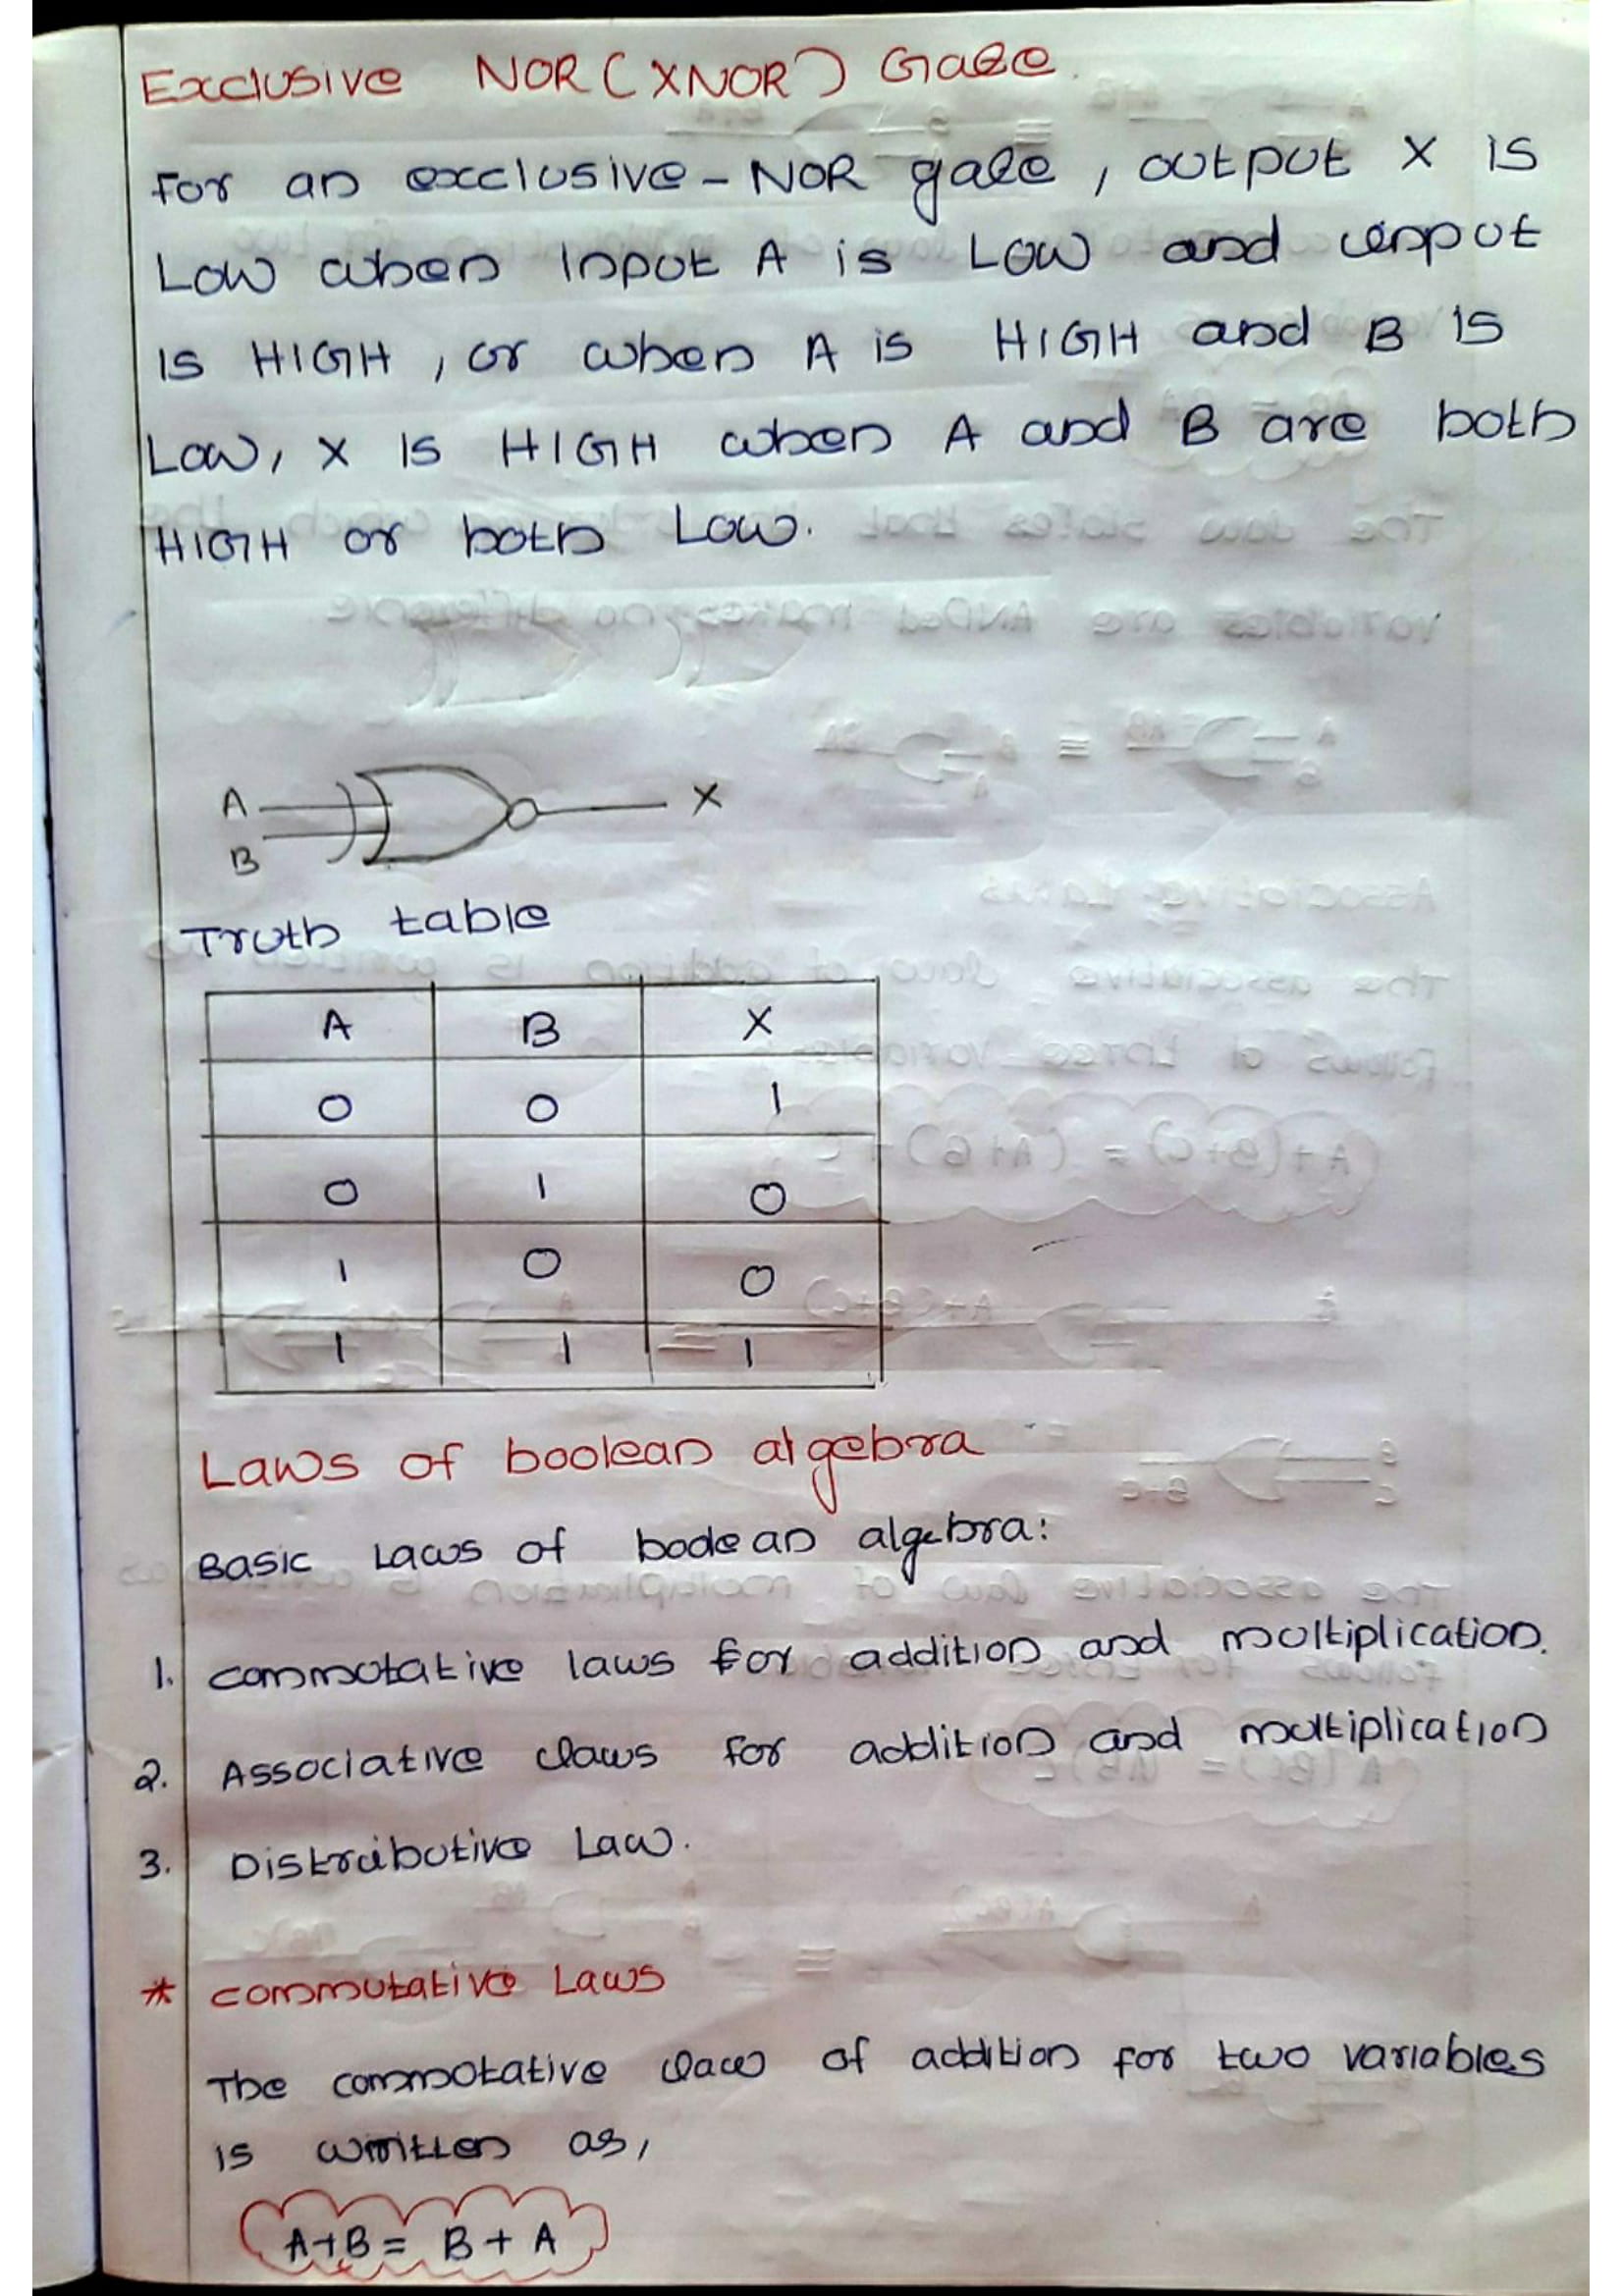 Exclusive NOR (XNOR) Gate.
For an exclusive-NOR gate, output X is
Low when Input A is LOW and input
is HIGH, or when A is HIGH and B is
Low, X is HIGH when A and B are both
HIGH or both Low.
A X
B
Truth table
A B X
0 0 1
0 1 0
1 0 0
1 1 1
Laws of boolean algebra
Basic Laws of boolean algebra:
1. commutative laws for addition and multiplication.
2. Associative laws for addition and multiplication
3. Distributive Law.
* commutative Laws
The commutative law of addition for two variables
is written as,
A+B = B + A